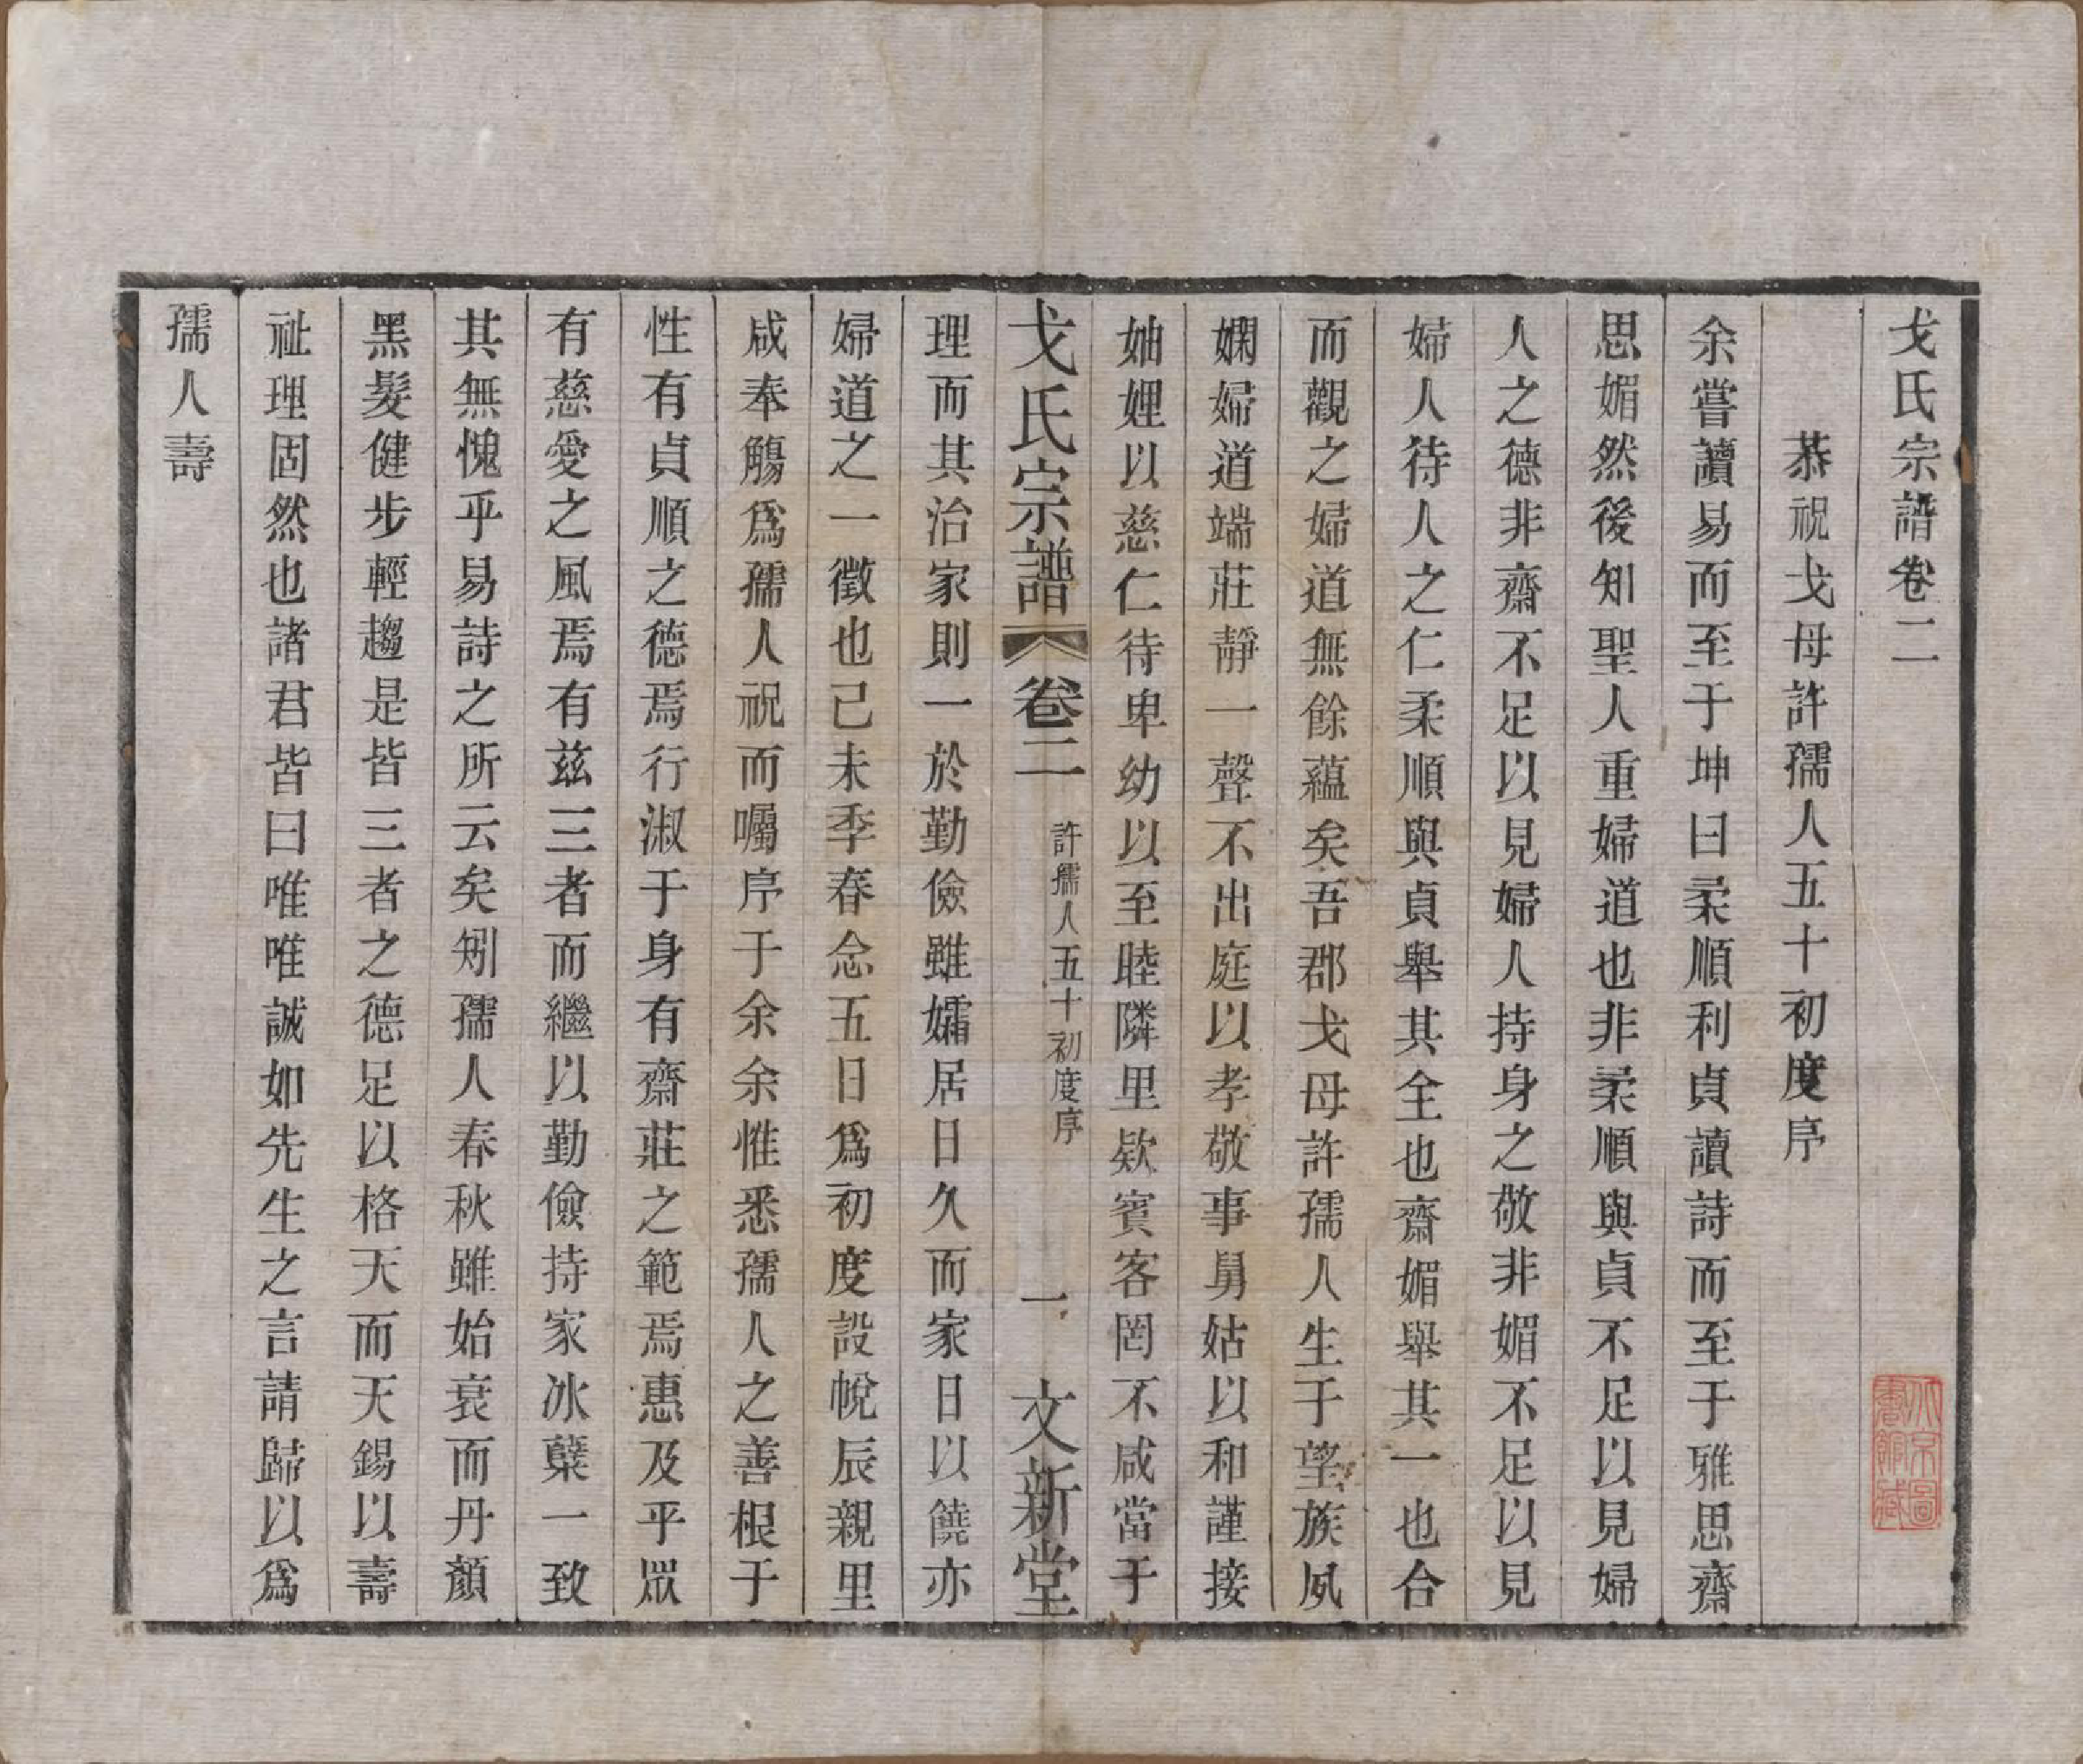 戈氏宗譜卷二
恭祝戈母許孺人五十初度序
余嘗讀易而至于坤曰柔順利貞讀詩而至于雅思齋
思媚然後知聖人重婦道也非柔順與貞不足以見婦
人之德非齋不足以見婦人持身之敬非媚不足以見
婦人待人之仁柔順與貞舉其全也齋媚舉其一也合
而觀之婦道無餘蘊矣吾郡戈母許孺人生于望族夙
嫻婦道端莊靜一聲不出庭以孝敬事舅姑以和謹接
妯娌以慈仁待卑幼以至睦隣里欵賓客罔不咸當于
戈氏宗譜 卷二 許孺人五十初度序 一 文新堂
理而其治家則一於勤儉雖孀居日久而家日以饒亦
婦道之一徵也己未季春念五日為初度設帨辰親里
咸奉觴為孺人祝而囑序于余余惟悉孺人之善根于
性有貞順之德焉行淑于身有齋莊之範焉惠及乎眾
有慈愛之風焉有兹三者而繼以勤儉持家冰蘗一致
其無愧乎易詩之所云矣矧孺人春秋雖始衰而丹顏
黑髮健步輕趨是皆三者之德足以格天而天錫以壽
祉理固然也諸君皆曰唯唯誠如先生之言請歸以為
孺人壽